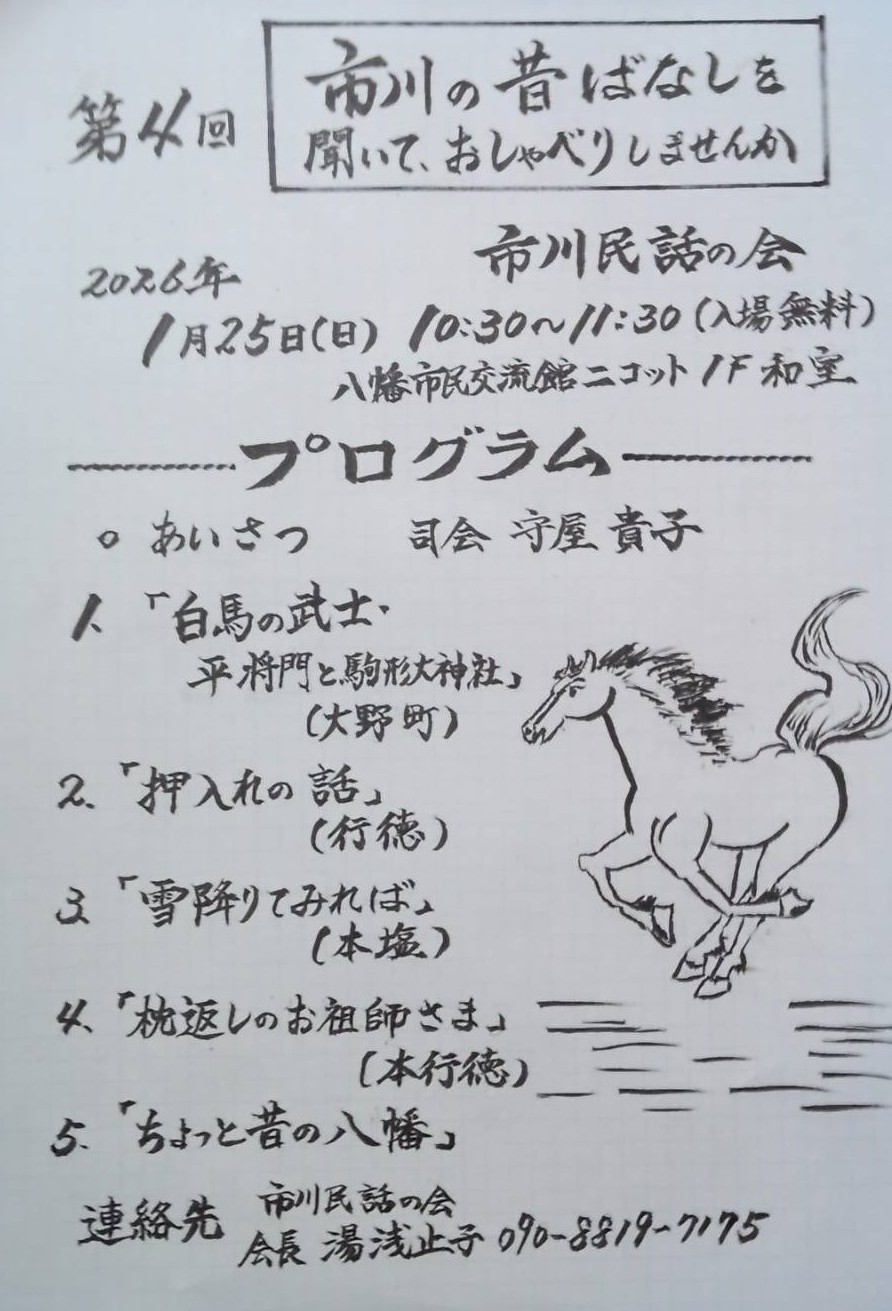 第4回
市川の昔ばなしを
聞いて、おしゃべりしませんか
市川民話の会
2026年
1月25日(日) 10:30〜11:30(入場無料)
八幡市民交流館ニコット1F和室
プログラム
○ あいさつ 司会 守屋貴子
1、「白馬の武士・
平将門と駒形大神社」
(大野町)
2、「押入れの話」
(行徳)
3、「雪降りてみれば」
(本塩)
4、「枕返しのお祖師さま」
(本行徳)
5、「ちょっと昔の八幡」
連絡先 市川民話の会
会長 湯浅止子 090-8819-7175